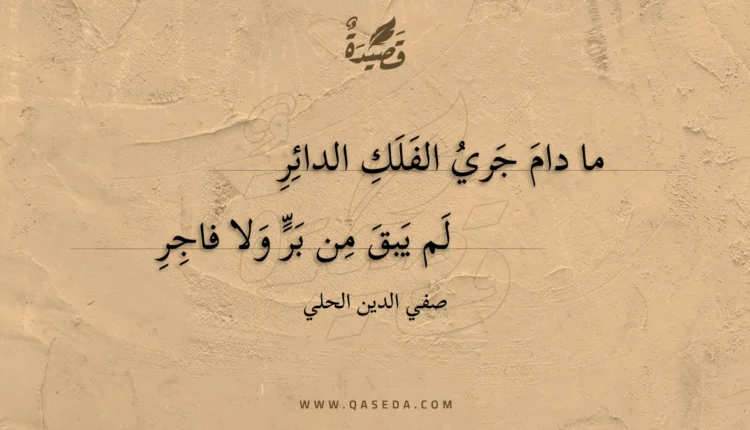 قَصِيْدَةٌ
ما دامَ جَريُ الفَلَكِ الدائِرِ
لَم يَبقَ مِن بَرٍّ وَلا فاجِرِ
صفي الدين الحلي
WWW.QASEDA.COM